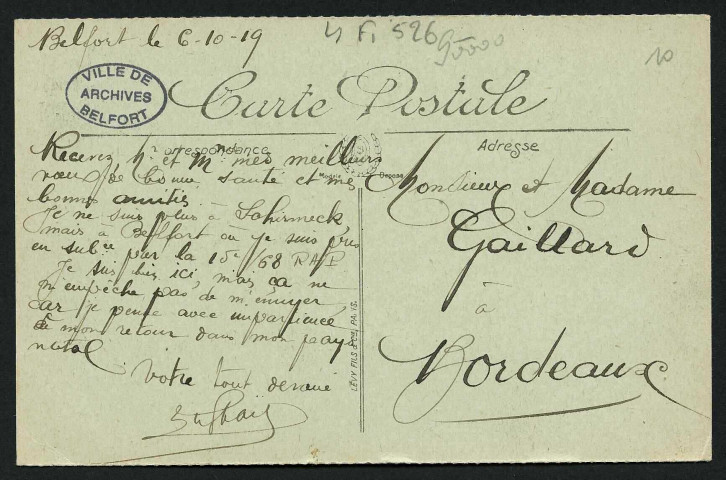 Belfort le 6-10-19
4 Fi 526
VILLE DE
ARCHIVES
BELFORT
Carte Postale
Correspondance
Adresse
Recevez Mr et Mme mes meilleurs
vœux de bonne santé et mes
bonnes amitiés
Je ne suis plus à Schirmeck
mais à Belfort où je suis pris
en subce par la 15e /68 RAP
Je suis bien ici, mais ça ne
m'empêche pas de m'ennuyer
car je pense avec impatience
à mon retour dans mon pays
natal
Votre tout dévoué
Monsieur et Madame
Gaillard
à
Bordeaux
LÉVY FILS & CIE, PARIS.